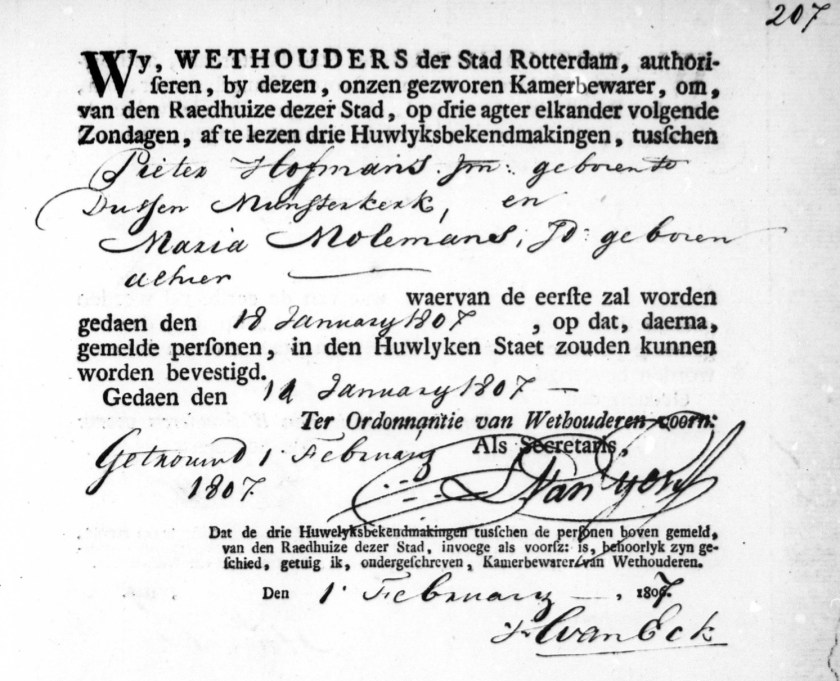 207
Wy, WETHOUDERS der Stad Rotterdam, authori-
ſeren, by dezen, onzen gezworen Kamerbewarer, om,
van den Raedhuize dezer Stad, op drie agter elkander volgende
Zondagen, af te lezen drie Huwlyksbekendmakingen, tusſchen
Pieter Hofmans. jm: geboren te
Dussen Munsterkerk, en
Maria Molemans, Jd: geboren
alhier
waervan de eerſte zal worden
gedaen den 18 January 1807, op dat, daerna,
gemelde perſonen, in den Huwlyken Staet zouden kunnen
worden bevestigd.
Gedaen den January 1807 —
Ter Ordonnantie van Wethouderen voorn:
Als Secretaris,
Getrouwd 1 February
1807.
Dat de drie Huwelyksbekendmakingen tusſchen de perſonen boven gemeld,
van den Raedhuize dezer Stad, invoege als voorſz: is, behoorlyk zyn ge-
ſchied, getuig ik, ondergeſchreven, Kamerbewarer van Wethouderen.
Den 1. February —, 1807.
van Eck